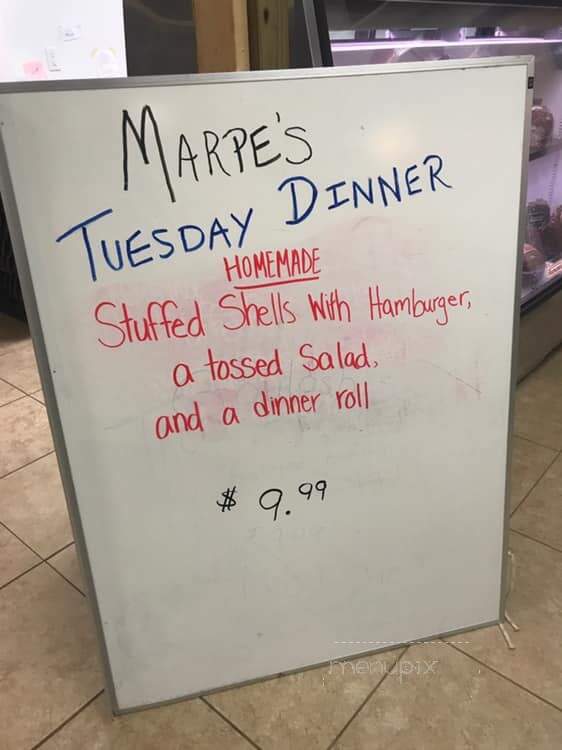 MARPE'S
TUESDAY DINNER
HOMEMADE
Stuffed Shells With Hamburger,
a tossed Salad,
and a dinner roll
$ 9.99
menupix